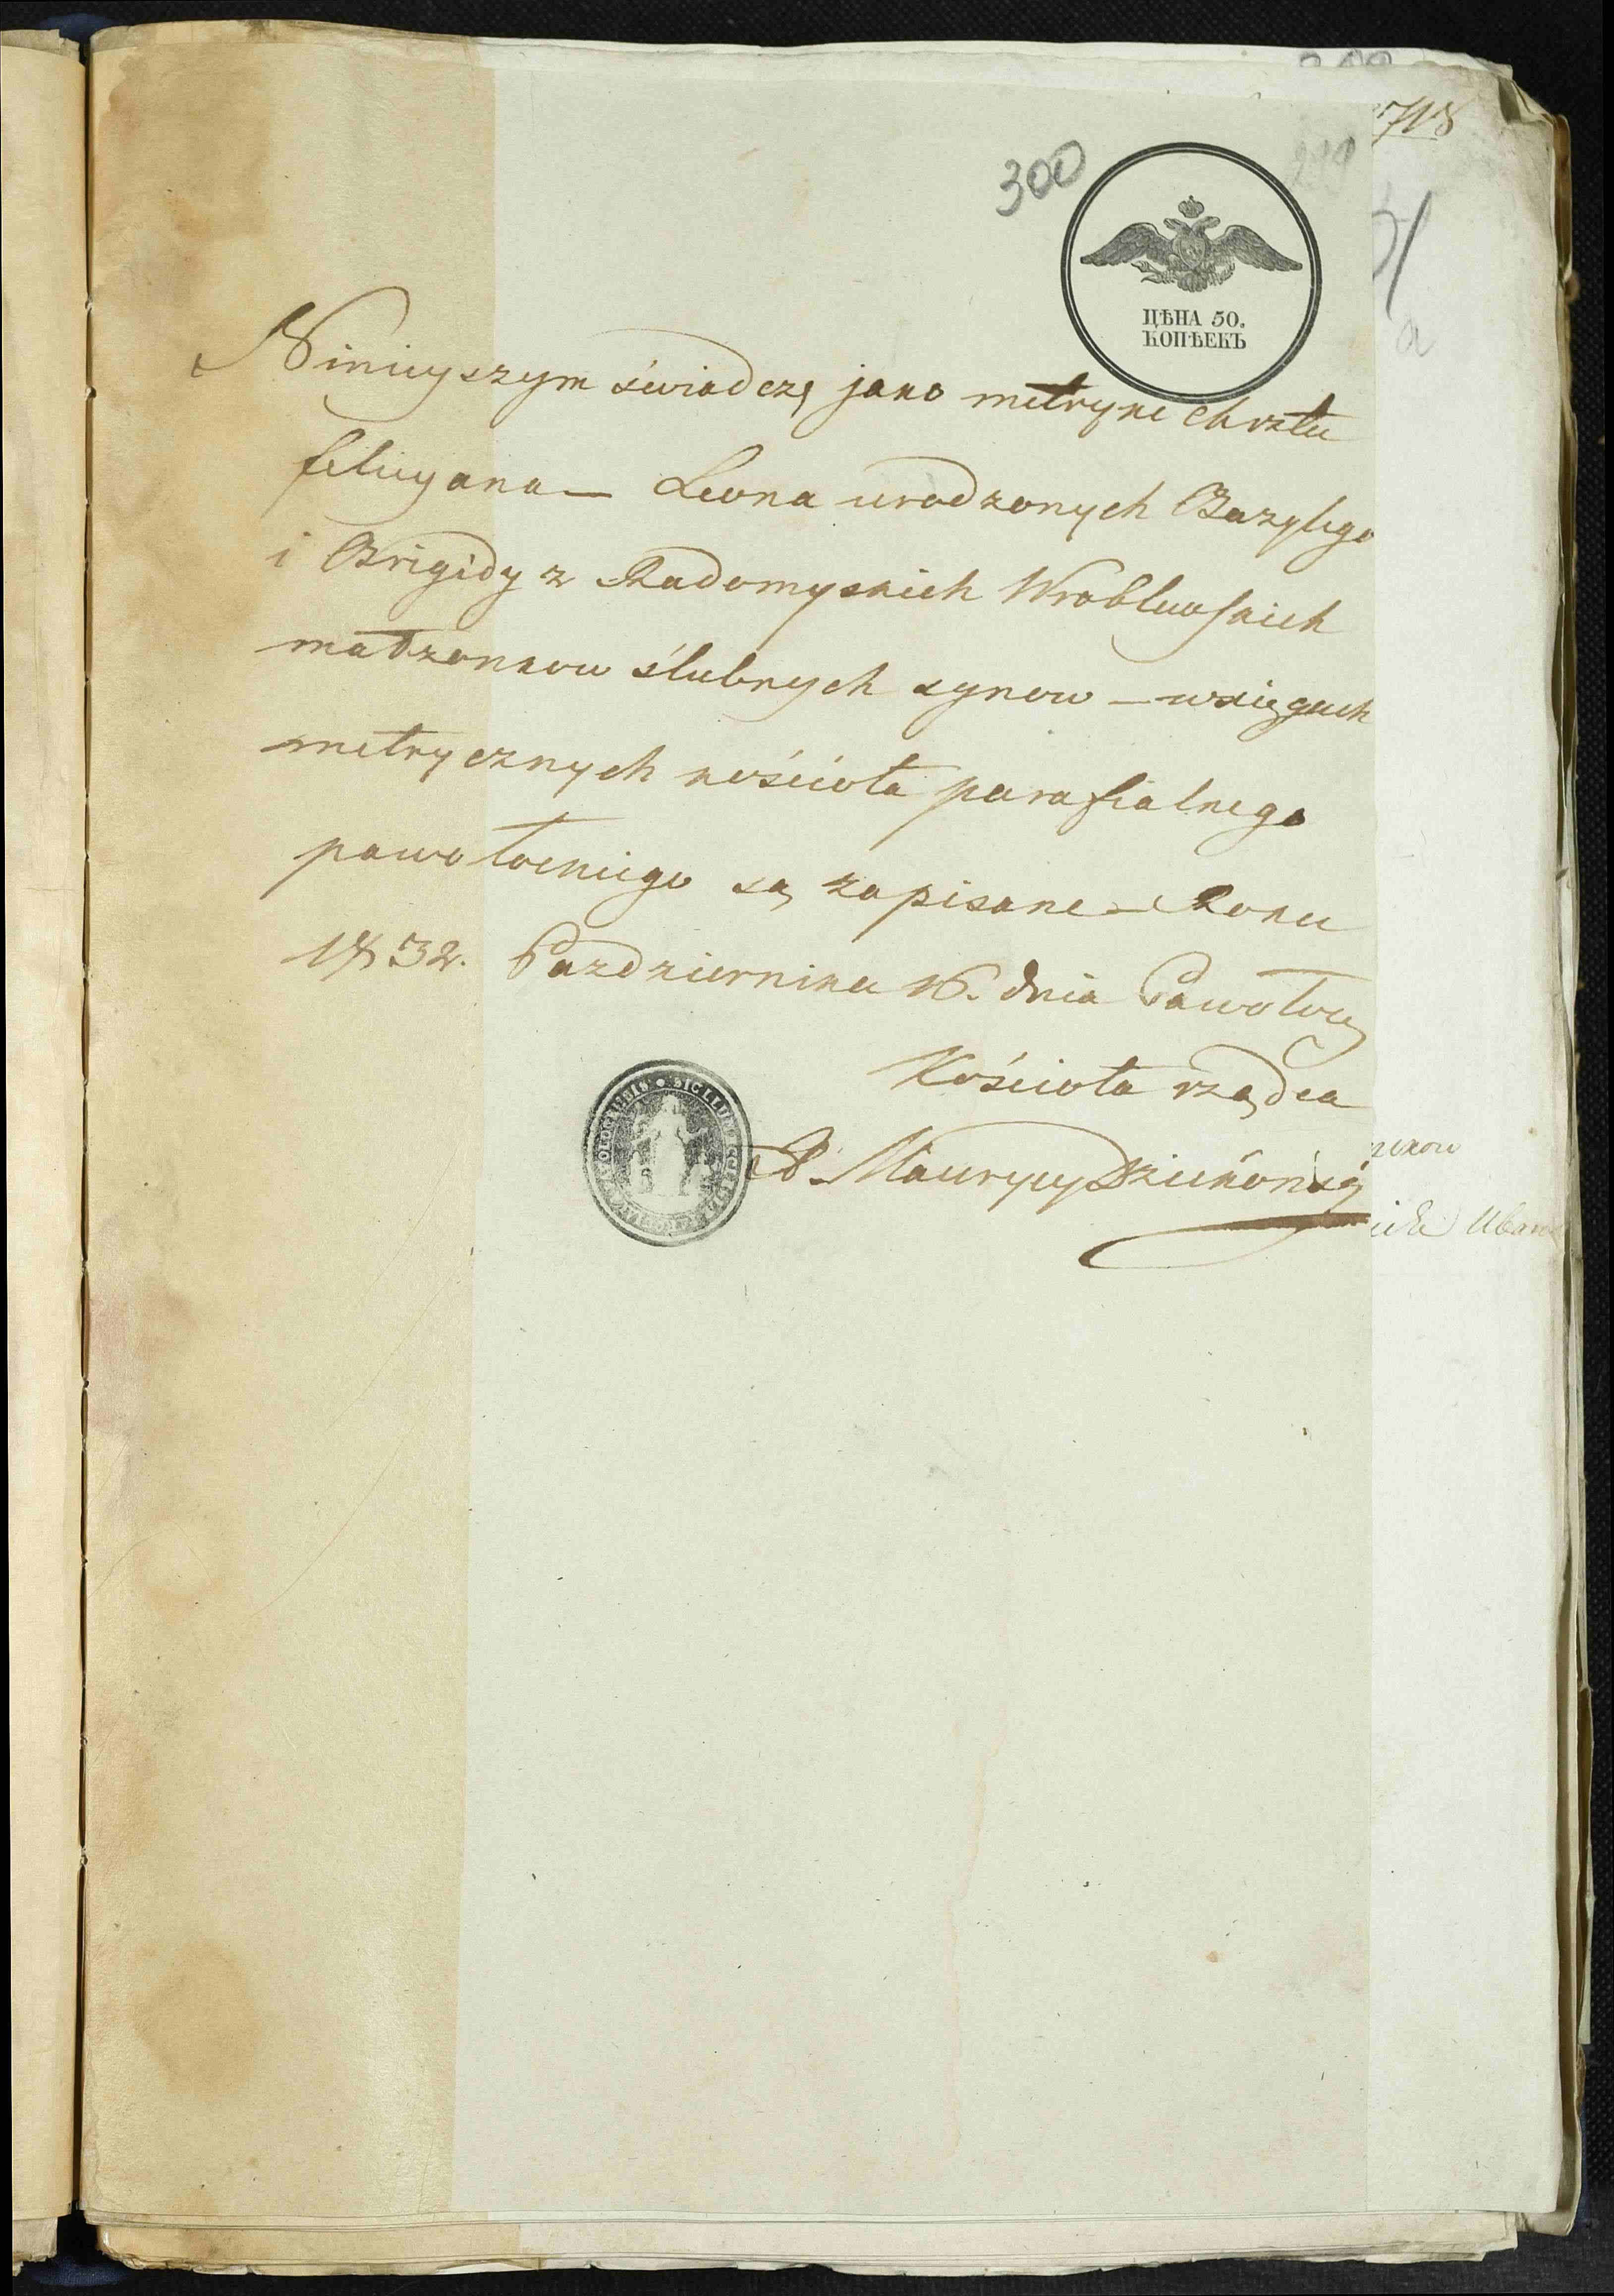 718
300
ЦѢНА 50.
КОПѢЕКЪ
Ninieyszym świadczę jako metryki chrztu
felicyana — Leona urodzonych Bazylego
i Brigidy z Radomyskich Wroblewskich
małzonkow ślubnych synow — w xięgach
metrycznych kościoła parafialnego
pawołockiego są zapisane — Roku
1832. Pazdziernika 16. dnia Pawołocz
Kościoła rządca
X. Maurycy Dziekoński